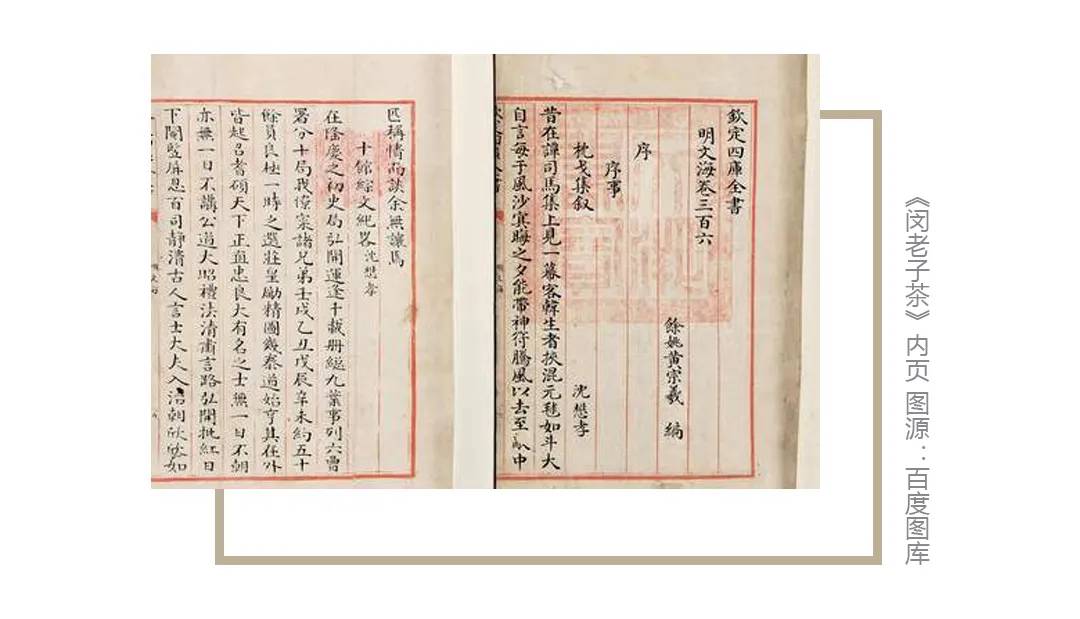 欽定四庫全書
明文海卷三百六
餘姚黄宗羲 編
序
序事
枕戈集叙 沈懋孝
昔在譚司馬集上見一幕客韓生者挾混元毬如斗大
自言每于風沙㝠晦之夕能帶神符騰風以去至 中
匡稱情而談余無讓焉
十館綜文紀畧沈懋孝
在隆慶之初史局弘開運逢十載册經九葉事列六曹
署分十局我偉寀諸兄弟壬戌乙丑戊辰辛未約五十
餘員良極一時之選莊皇勵精圖幾泰道始亨其在外
皆起召耆碩天下正直忠良大有名之士無一日不朝
亦無一日不講公道大昭禮法清肅言路弘開批紅日
下閣監屏息百司靜清古人言士大夫入治朝欣欣如
《闵老子茶》内页 图源：百度图库